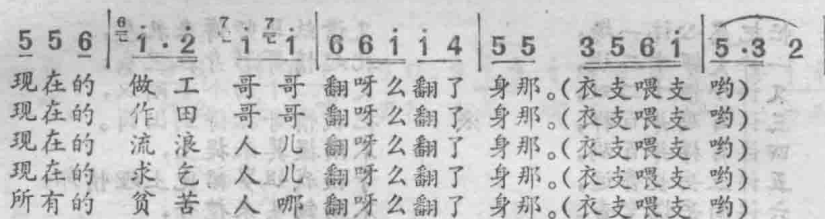 5 5 6 | 6 1̇·2̇ 7 1̇ 7 1̇ | 6 6 1̇ 1̇ 4 | 5 5 3 5 6 1̇ | 5·3 2
现在的 做工 哥哥 翻呀么翻了 身那。(衣支喂支 哟)
现在的 作田 哥哥 翻呀么翻了 身那。(衣支喂支 哟)
现在的 流浪 人儿 翻呀么翻了 身那。(衣支喂支 哟)
现在的 求乞 人儿 翻呀么翻了 身那。(衣支喂支 哟)
所有的 贫苦 人哪 翻呀么翻了 身那。(衣支喂支 哟)